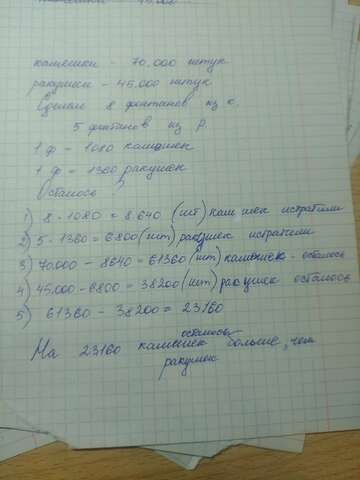 камешки - 70.000 штук
ракушки - 45.000 штук
Сделали 8 фонтанов из к.
5 фонтанов из р.
1 ф = 1080 камешек
1 ф = 1360 ракушек
Осталось ?
1) 8 · 1080 = 8.640 (шт) камешек истратили
2) 5 · 1360 = 6800 (шт) ракушек истратили
3) 70.000 - 8640 = 61360 (шт) камешек - осталось
4) 45.000 - 6800 = 38200 (шт) ракушек осталось
5) 61360 - 38200 = 23160
На 23160 камешек осталось больше, чем
ракушек